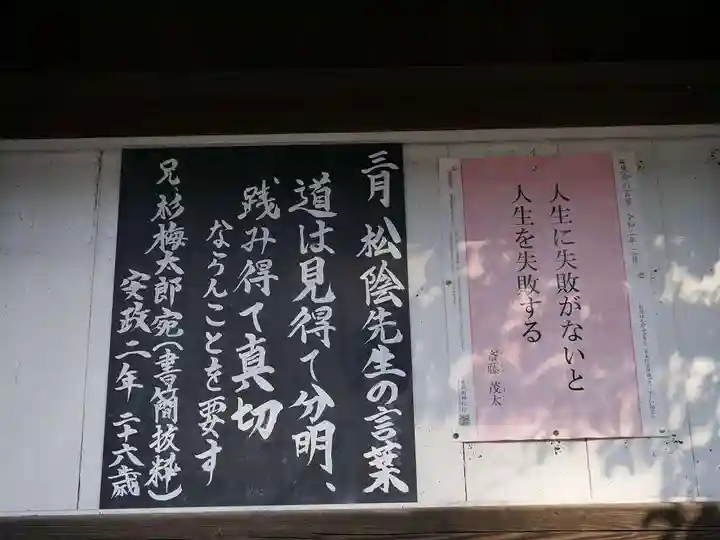 三月 松陰先生の言葉
道は見得て分明、
践み得て真切
ならんことを要す
兄・杉梅太郎宛(書簡抜粋)
安政二年 二十六歳
人生に失敗がないと
人生を失敗する
斎藤 茂太